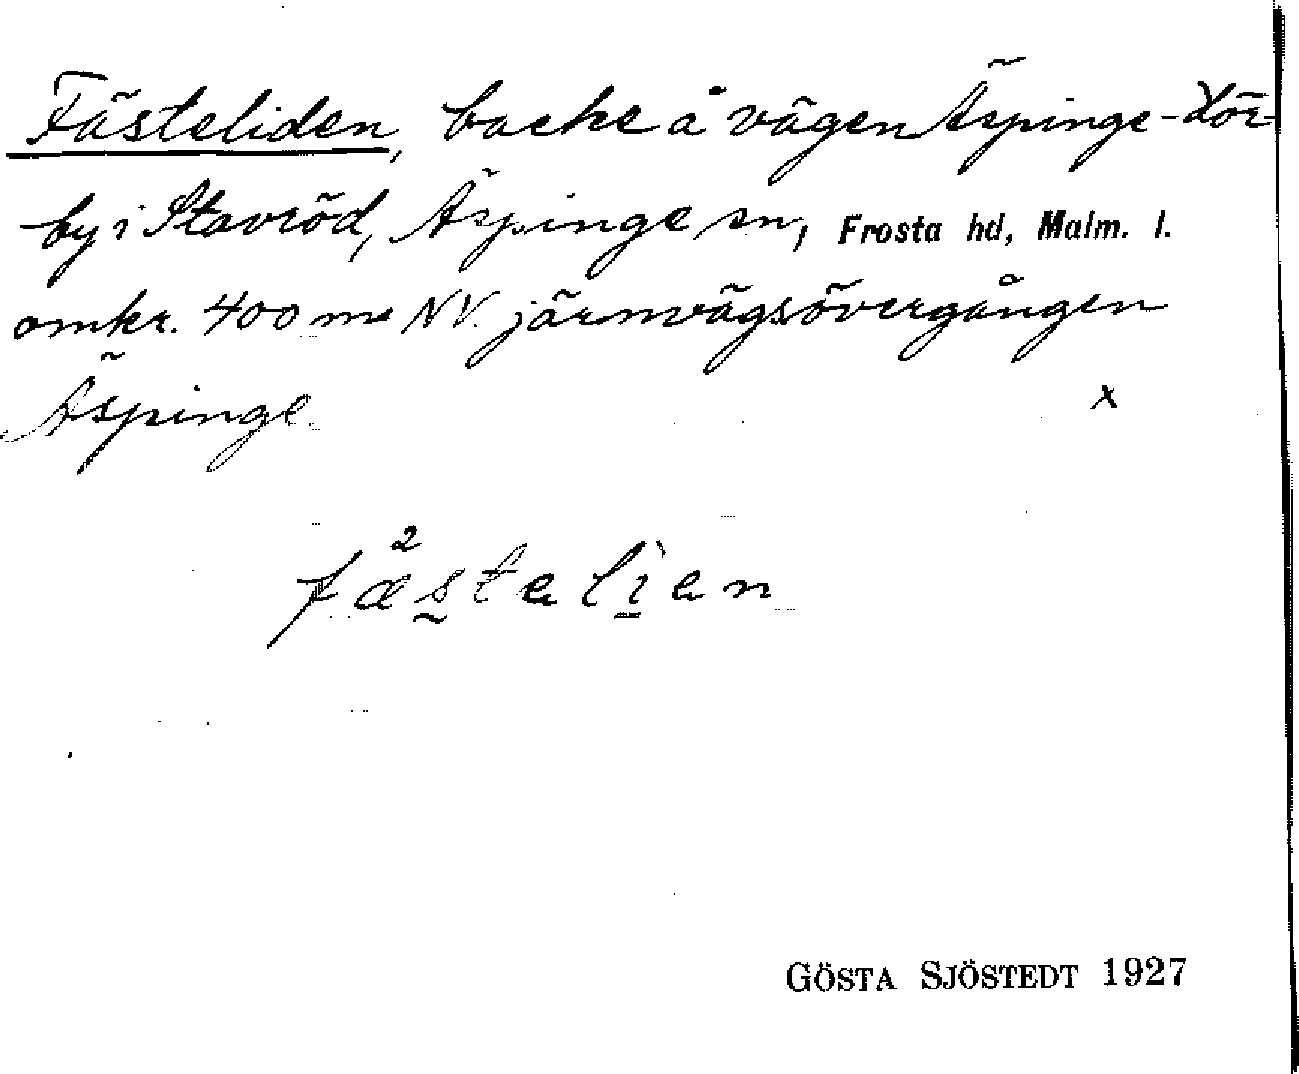 Fästeliden, backe å vägen Äspinge-Hör-
by i Stavröd, Äspinge sn, Frosta hd, Malm. l.
omkr. 400 m NV. järnvägsövergången
Äspinge.
x
GÖSTA SJÖSTEDT 1927